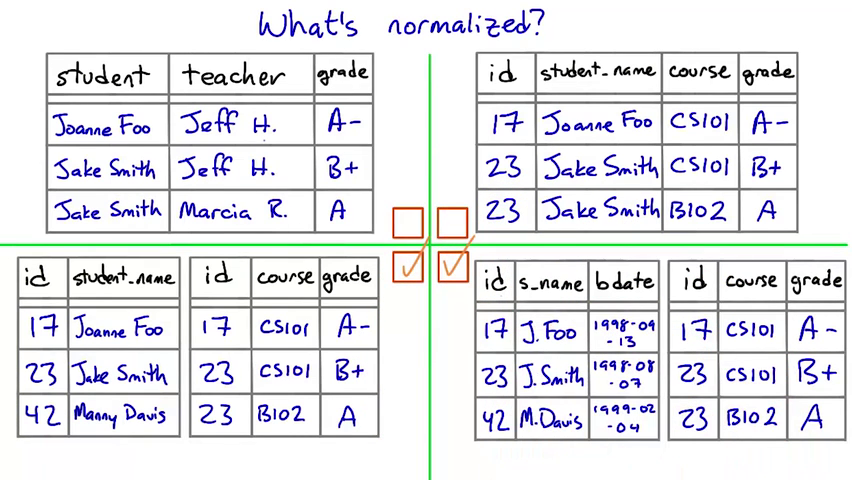 What's normalized?
student teacher grade
Joanne Foo Jeff H. A-
Jake Smith Jeff H. B+
Jake Smith Marcia R. A
id student_name course grade
17 Joanne Foo CS101 A-
23 Jake Smith CS101 B+
23 Jake Smith B102 A
id student_name
17 Joanne Foo
23 Jake Smith
42 Manny Davis
id course grade
17 CS101 A-
23 CS101 B+
23 B102 A
id s_name bdate
17 J. Foo 1998-09
-13
23 J. Smith 1998-08
-07
42 M. Davis 1999-02
-04
id course grade
17 CS101 A-
23 CS101 B+
23 B102 A